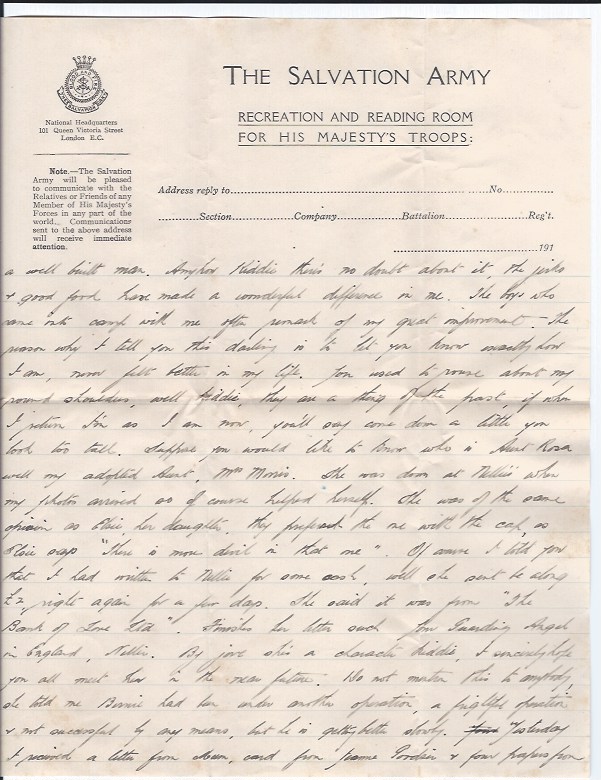 THE SALVATION ARMY
RECREATION AND READING ROOM
FOR HIS MAJESTY'S TROOPS:
BLOOD AND FIRE
THE SALVATION ARMY
National Headquarters
101 Queen Victoria Street
London E.C.
Note.—The Salvation
Army will be pleased
to communicate with the
Relatives or Friends of any
Member of His Majesty's
Forces in any part of the
world. Communications
sent to the above address
will receive immediate
attention.
Address reply to............ No............
............Section............Company............Battalion............Reg't.
............191
a well built man. Anyhow Kiddie there's no doubt about it, the jerks
& good food have made a wonderful difference in me. The boys who
came into camp with me often remark of my great improvement. The
reason why I tell you this darling is to let you know exactly how
I am, never felt better in my life. You used to rouse about my
round shoulders, well Kiddie, they are a thing of the past, if when
I return I'm as I am now, you'll say come down a little you
look too tall. Suppose you would like to know who is Aunt Rosa
well my adopted Aunt, Mrs Morris. She was down at Nellie's when
my photos arrived so of course helped herself. She was of the same
opinion as Elsie, her daughter, they the one with the cap, as
Elsie says "There is more devil in that one". Of course I told you
that I had written to Nellie for some cash, well she sent be along
£2, right again for a few days. She said it was from "The
Bank of Love Ltd". Finishes her letter such Your Guardian Angel
in England, Nellie. By jove she's a character Kiddie, I sincerely hope
you all meet her in the near future. Do not mention this to anybody
she told me had her under another operation, a frightful operation
& not successful by any means, but he is getting better slowly. Yesterday
I received a letter from Mum, card from & four papers from